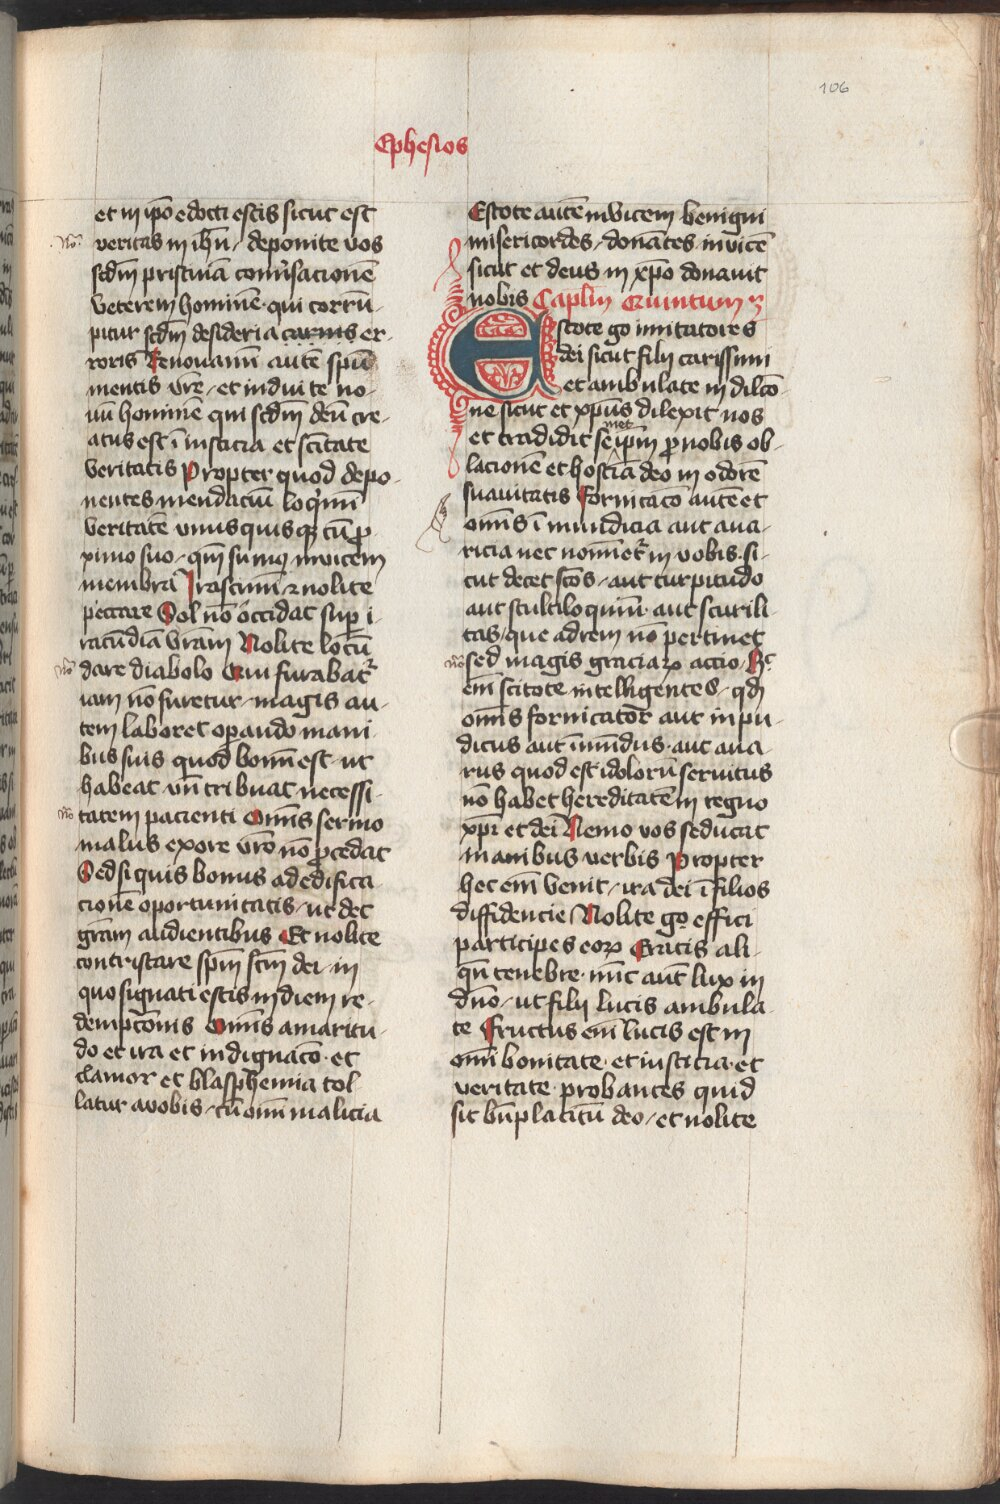 106
Ephesios
et in ip̄o edocti estis sicut est
veritas in ih̄u / deponite vos
scdm̄ pristinā conūsacionē
veterem hominē · qui corrū-
pitur scdm̄ desideria carnis er-
roris Renouamī autē spū
mentis vrē / et indui te no-
uū hominē qui scdm̄ deū cre-
atus est ī iusticia et sc̄itate
veritatis Propter quod depo-
nentes mendaciū loqmī
veritatē vnusquisqꝫ cū ꝓ-
ximo suo / qm̄ sumꝰ inuicem
membra Irascimī ⁊ nolite
peccare Sol nō occidat suꝑ i-
racūdiā vrām Nolite locū
dare diabolo Qui furabat᷑
iam nō furetur / magis au-
tem laboret oꝑando mani
bus suis quod bonū est · ut
habeat vn̄ tribuat necessi-
tatem pacienti Om̄is sermo
malus ex ore vrō nō ꝓcedat
Sed si quis bonus ad edifica-
cionē oportunitatis / ut det
gr̄am audientibus Et nolite
contristare spm̄ scm̄ dei / in
quo signati estis in diem re-
dempcōnis Om̄is amaritu-
do et ira et indignacō · et
clamor et blasphemia tol
latur a vobis / cū om̄i malicia
Estote autē inuicem benigni
misericordes / donātes inuicē
sicut et deus in xp̄o donauit
nobis Caplm̄ Quintum
Estote gͦ imitatores
dei sicut filij carissimi
et ambulate in dilcō-
ne sicut et xp̄us dilexit nos
met
et tradidit seip̄m ꝓ nobis ob-
lacionē et hostiā deo in odorē
suauitatis Fornicacō autē et
om̄s ī mundicia aut aua-
ricia nec nomīet᷑ in vobis · si-
cut decet sc̄os / aut turpitudo
aut stultiloquiū · aut scurili-
tas / que ad rem nō pertinet
sed magis graciaꝝ actio / Hͨ
em̄ scitote intelligentes / qd̄
om̄s fornicator aut inpu-
dicus aut īmūdus · aut aua-
rus quod est idolorū seruitus
nō habet hereditatē in regno
xp̄i et dei Nemo vos seducat
inanibus verbis Propter
hec em̄ venit / ira dei ī filios
diffidencie Nolite gͦ effici
participes eoꝝ Eratis ali-
qn̄ tenebre · nūc aut̄ lux in
dn̄o / ut filij lucis ambula-
te Fructus em̄ lucis est in
om̄i bonitate · et iusticia · et
veritate · probantes quid
sit bn̄placitū deo / et nolite